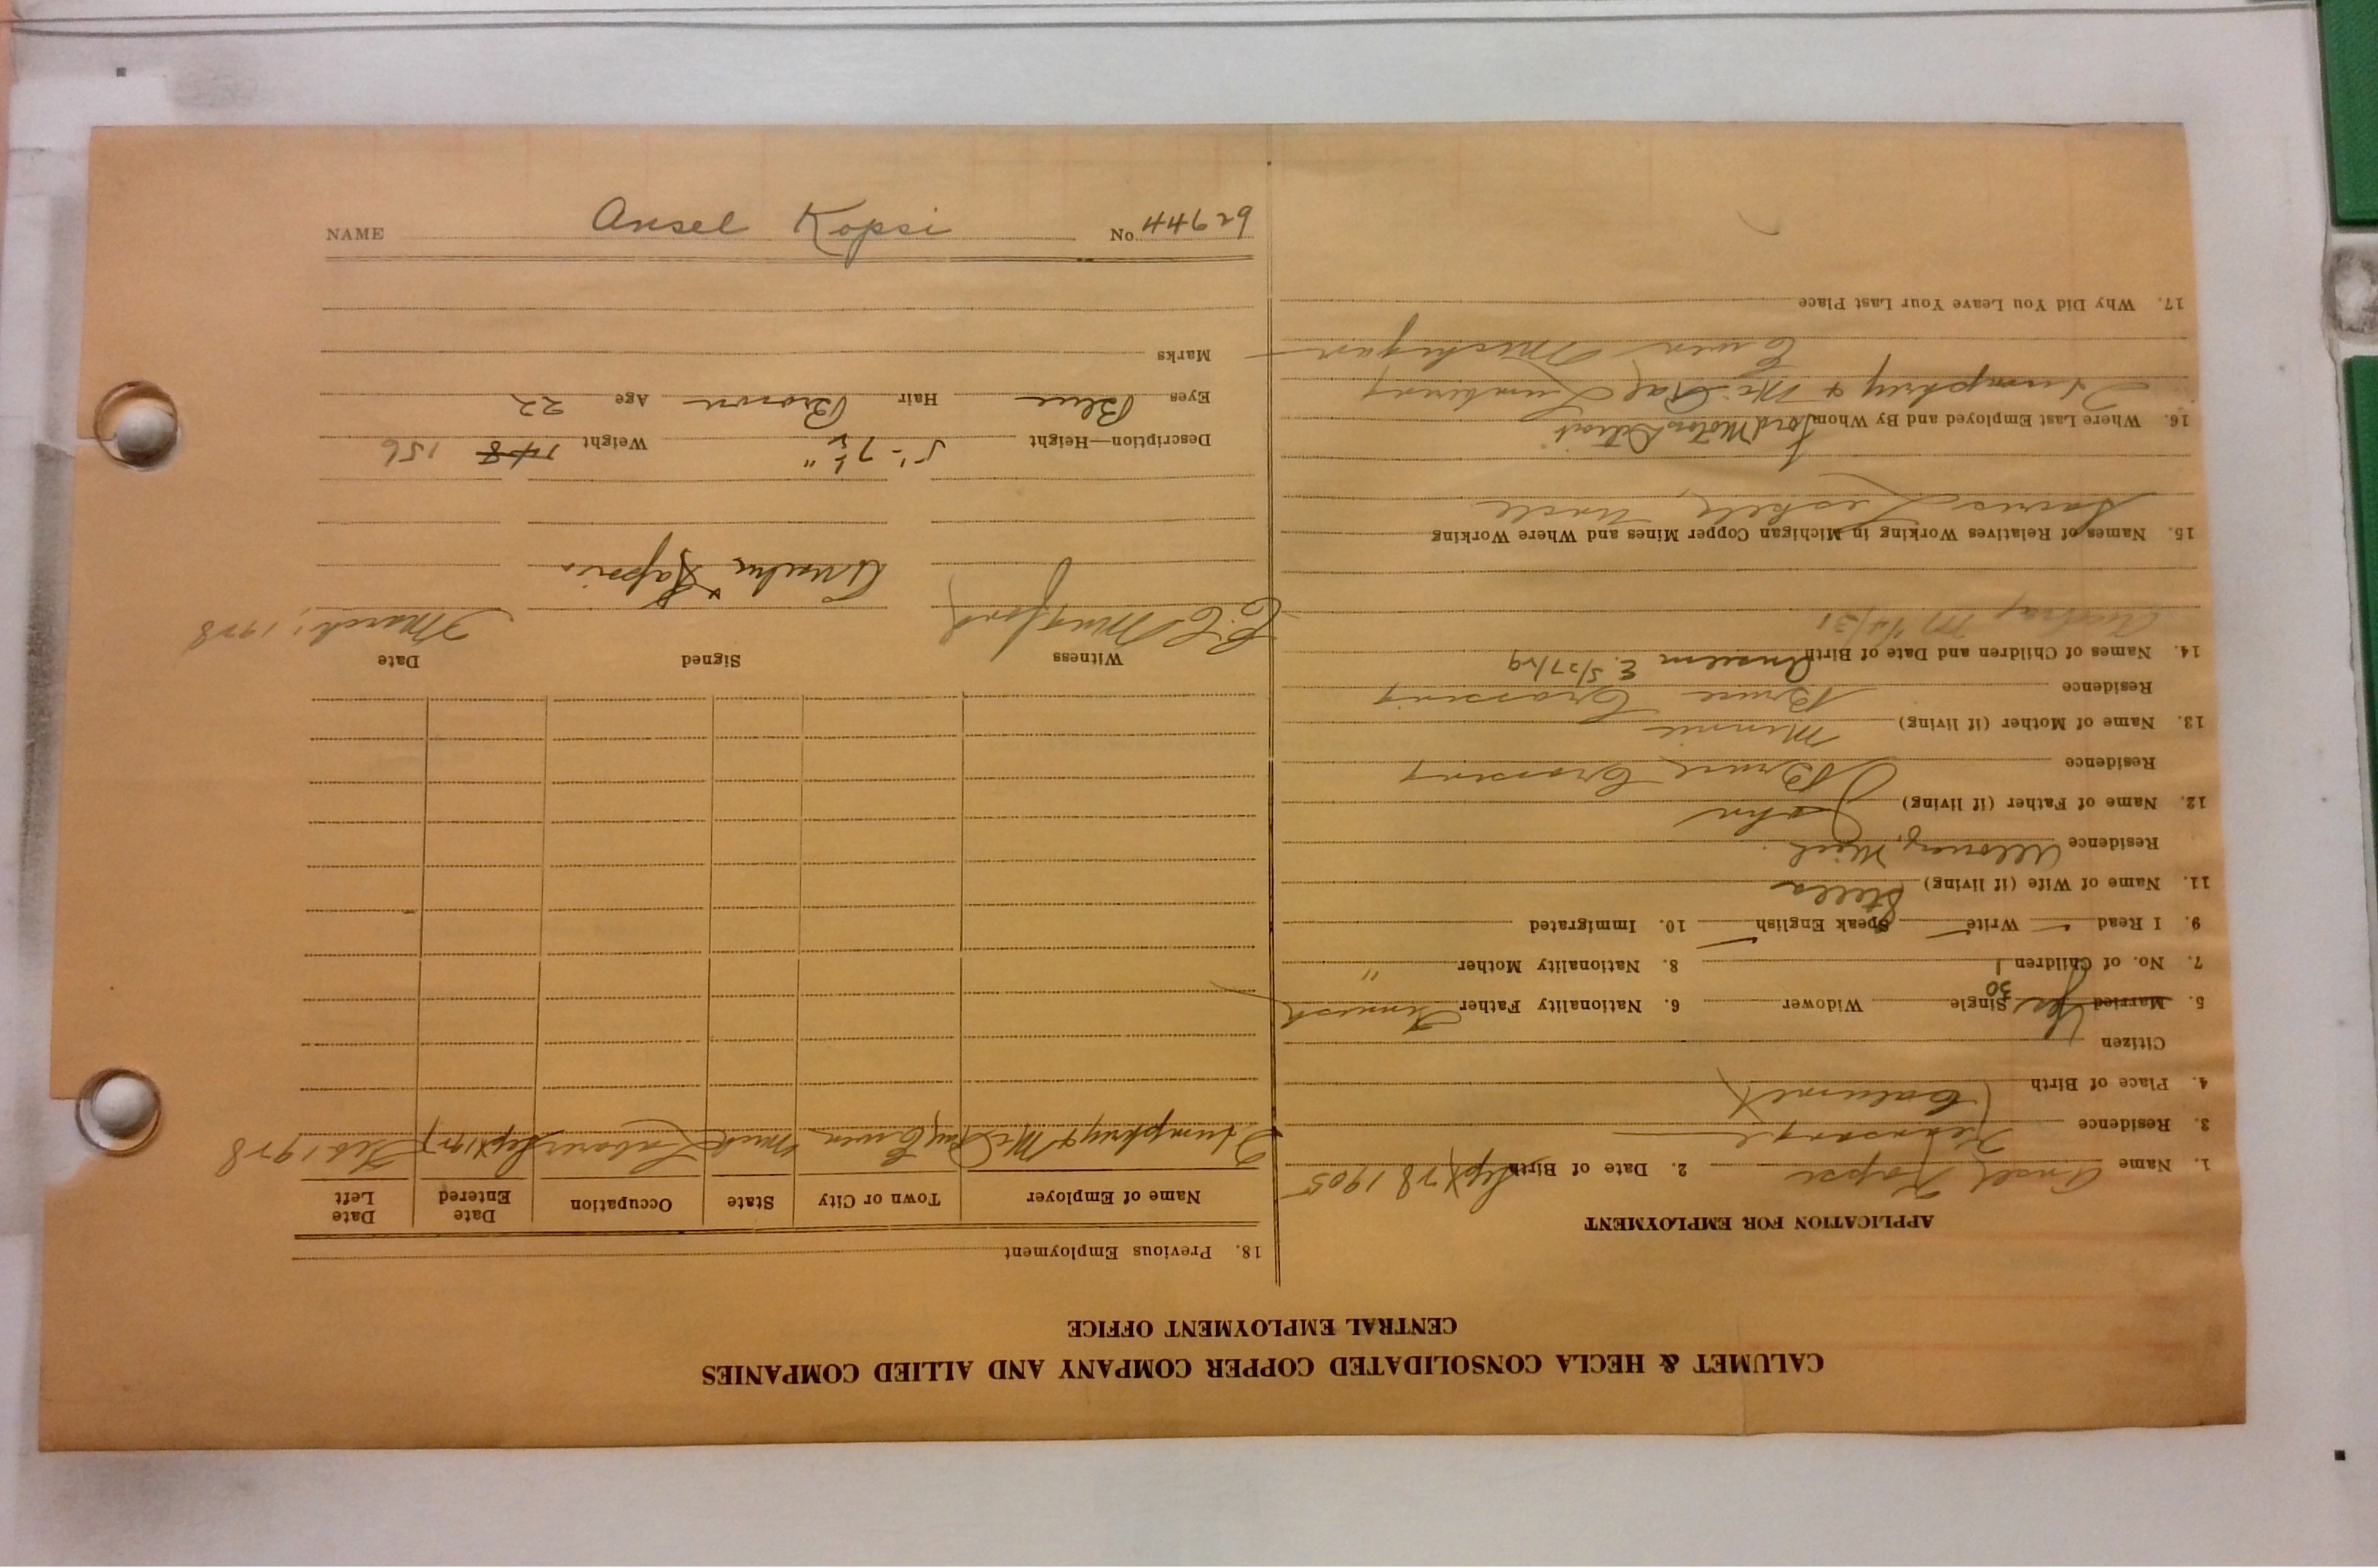 CALUMET & HECLA CONSOLIDATED COPPER COMPANY AND ALLIED COMPANIES
CENTRAL EMPLOYMENT OFFICE
APPLICATION FOR EMPLOYMENT
1. Name Ansel Kopsi 2. Date of Birth Sept 28 1905
3. Residence Kearsarge
4. Place of Birth Calumet
Citizen
5. Married Yes Single Widower 6. Nationality Father Finnish
30
7. No. of Children 1 8. Nationality Mother "
9. I Read Write Speak English 10. Immigrated
11. Name of Wife (if living) Stella
Residence Allouez, Mich.
12. Name of Father (if living) John
Residence Bruce Crossing
13. Name of Mother (if living) Minnie
Residence Bruce Crossing
14. Names of Children and Date of Birth Anselm E. 5/27/29
Audray M
15. Names of Relatives Working in Michigan Copper Mines and Where Working
Uncle
16. Where Last Employed and By Whom Ford Motor Detroit
Humphrey & McRae Lumbering
Ewen Michigan
17. Why Did You Leave Your Last Place
18. Previous Employment
Name of Employer Town or City State Occupation Date Entered Date Left
Humphrey & McRae Ewen Mich Laborer Sept 1927 Feb 1928
Witness Signed Date
March 1, 1928
Description—Height 5'-7½" Weight 148 156
Eyes Blue Hair Brown Age 22
Marks
NAME Ansel Kopsi No. 44629